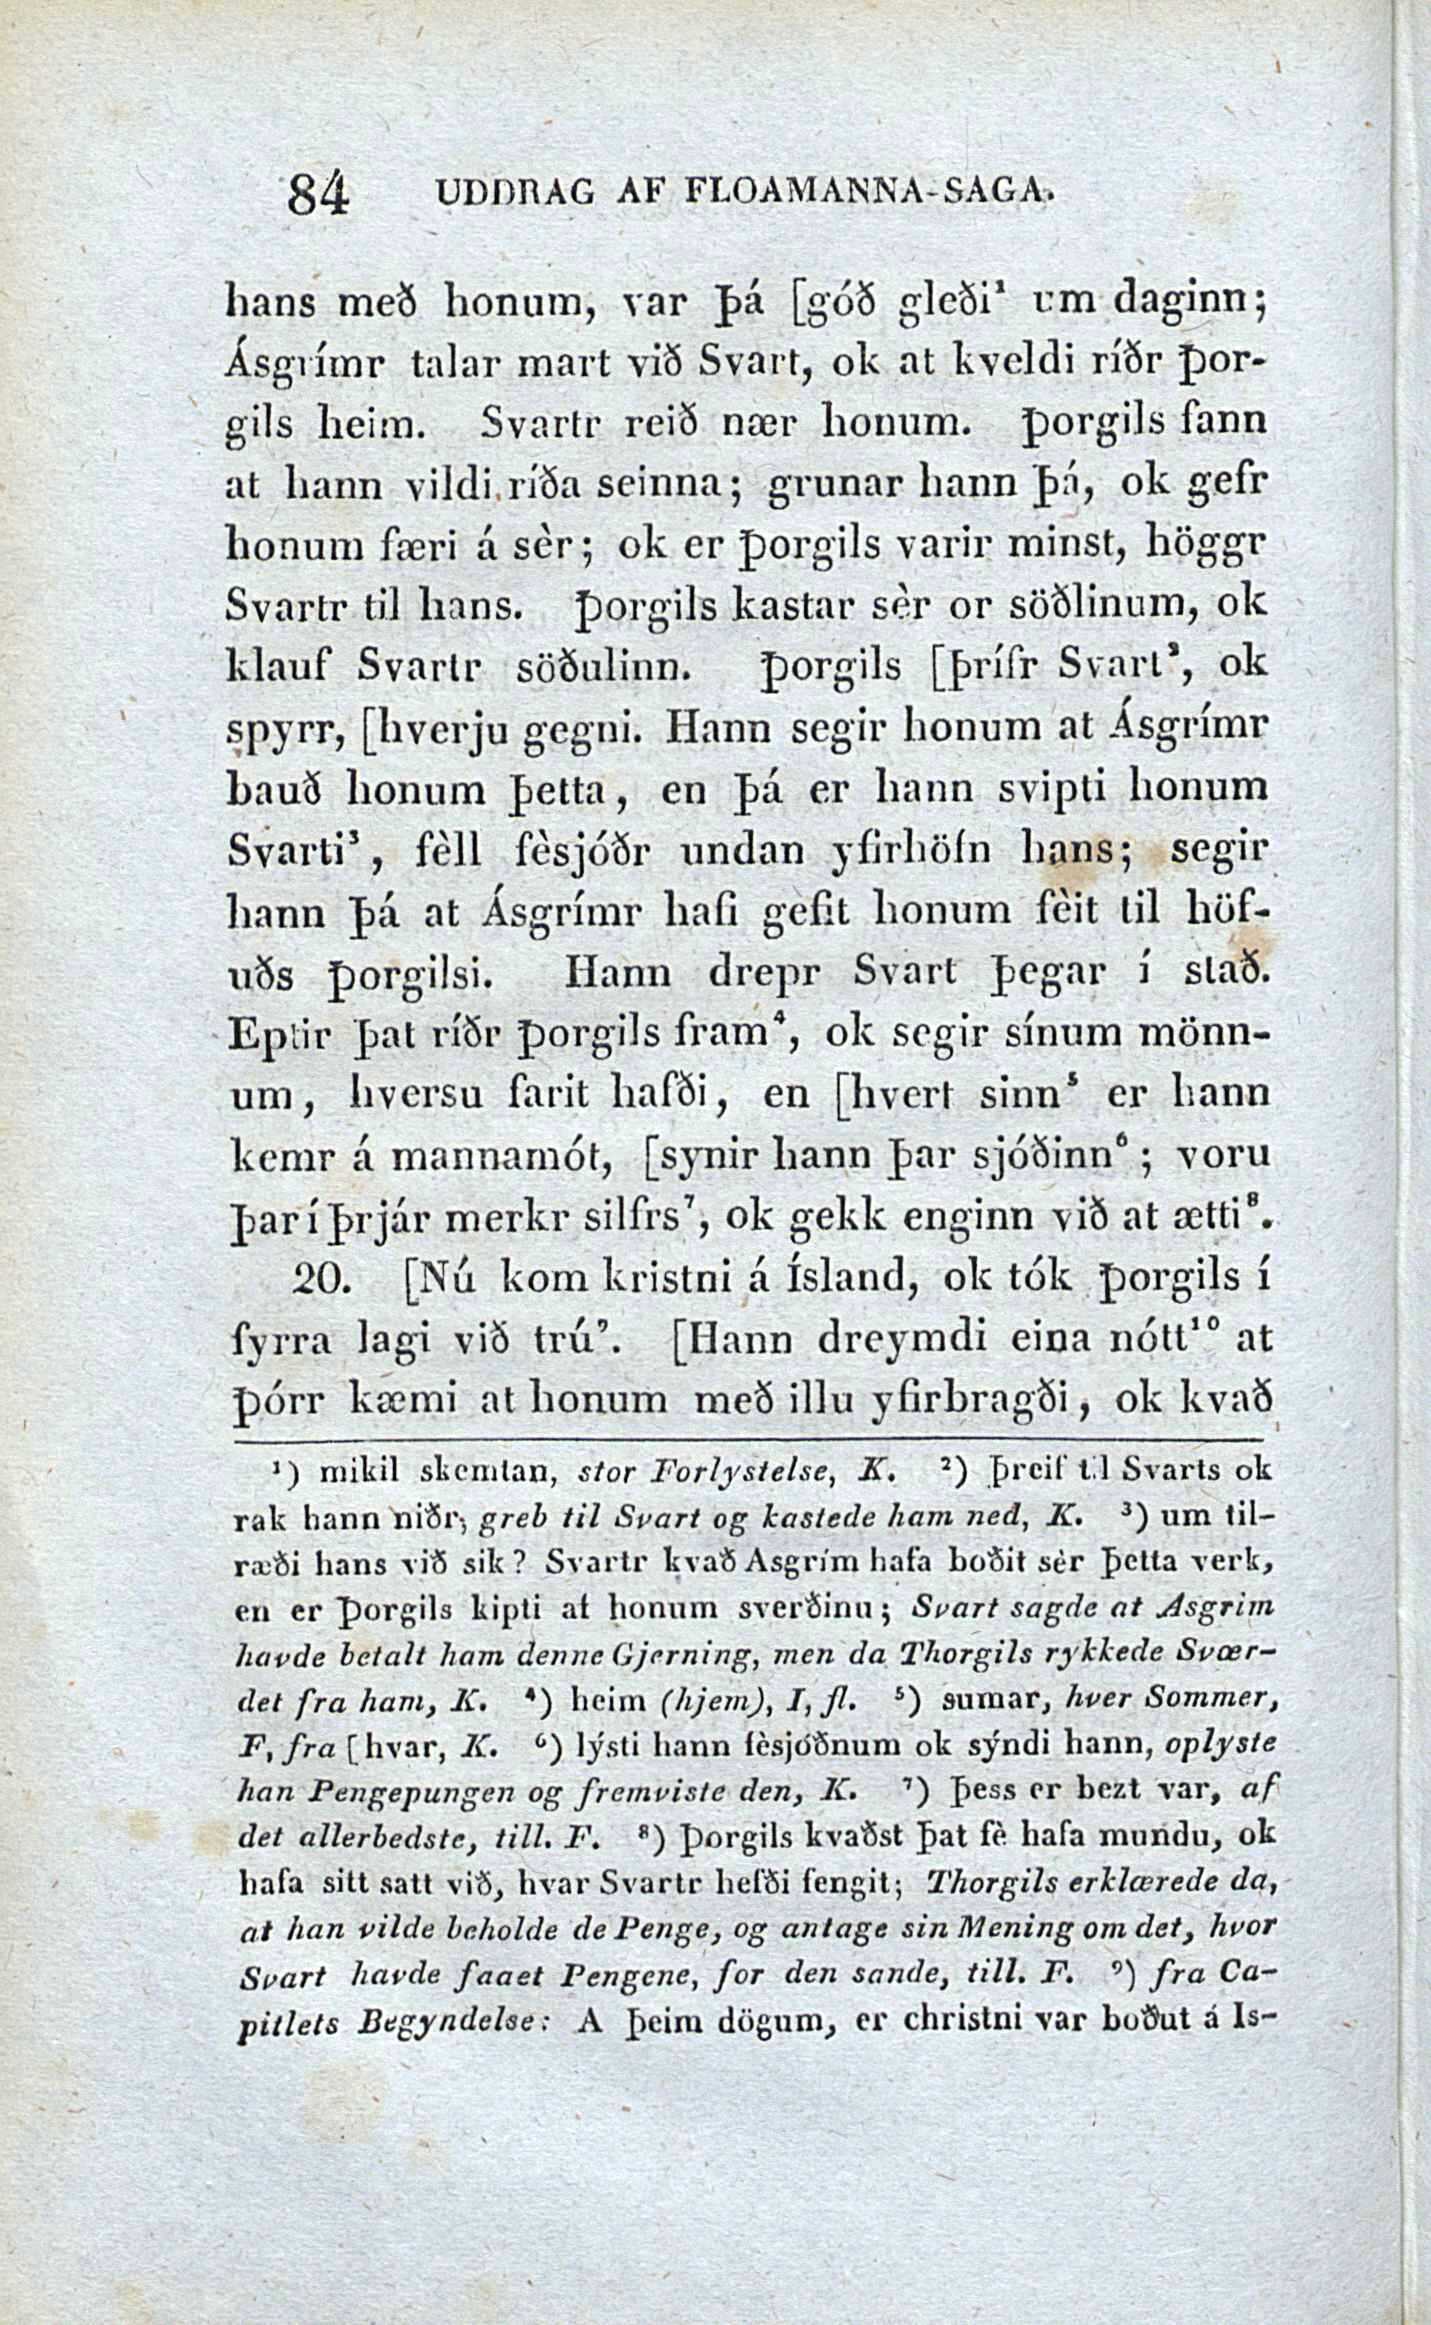 84 UDDRAG AF FLOAMANNA-SAGA.
hans með honum, var þá [góð gleði¹ um daginn;
Ásgrímr talar mart við Svart, ok at kveldi ríðr Þor-
gils heim. Svartr reið nær honum. Þorgils fann
at hann vildi ríða seinna; grunar hann þá, ok gefr
honum færi á sèr; ok er Þorgils varir minst, höggr
Svartr til hans. Þorgils kastar sèr or söðlinum, ok
klauf Svartr söðulinn. Þorgils [þrífr Svart², ok
spyrr, [hverju gegni. Hann segir honum at Ásgrímr
bauð honum þetta, en þá er hann svipti honum
Svarti³, fèll fèsjóðr undan yfirhöfn hans; segir
hann þá at Ásgrímr hafi gefit honum fèit til höf-
uðs Þorgilsi. Hann drepr Svart þegar í stað.
Eptir þat ríðr Þorgils fram⁴, ok segir sínum mönn-
um, hversu farit hafði, en [hvert sinn⁵ er hann
kemr á mannamót, [synir hann þar sjóðinn⁶; voru
þar í þrjár merkr silfrs⁷, ok gekk enginn við at ætti⁸.
20. [Nú kom kristni á Ísland, ok tók Þorgils í
fyrra lagi við trú⁹. [Hann dreymdi eina nótt¹⁰ at
Þórr kæmi at honum með illu yfirbragði, ok kvað
¹) mikil skemtan, stor Forlystelse, K. ²) þreif til Svarts ok
rak hann niðr; greb til Svart og kastede ham ned, K. ³) um til-
ræði hans við sik? Svartr kvað Asgrím hafa boðit sèr þetta verk,
en er Þorgils kipti af honum sverðinu; Svart sagde at Asgrim
havde betalt ham denne Gjerning, men da Thorgils rykkede Svær-
det fra ham, K. ⁴) heim (hjem), I, fl. ⁵) sumar, hver Sommer,
F, fra [hvar, K. ⁶) lýsti hann fèsjóðnum ok sýndi hann, oplyste
han Pengepungen og fremviste den, K. ⁷) þess er bezt var, af
det allerbedste, till. F. ⁸) Þorgils kvaðst þat fè hafa mundu, ok
hafa sitt satt við, hvar Svartr hefði fengit; Thorgils erklærede da,
at han vilde beholde de Penge, og antage sin Mening om det, hvor
Svart havde faaet Pengene, for den sande, till. F. ⁹) fra Ca-
pitlets Begyndelse: A þeim dögum, er christni var boðut á Is-